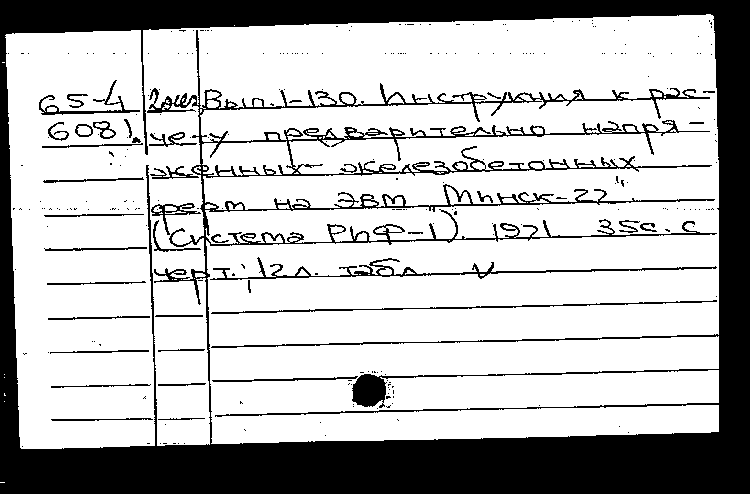 65-4 2 экз Вып. 1-130. Инструкция к рас-
6081. чету предварительно напря-
женных железобетонных
ферм на ЭВМ "Минск-22".
(Система РИФ-1"). 1971 35с. с
черт.; 12 л. табл V